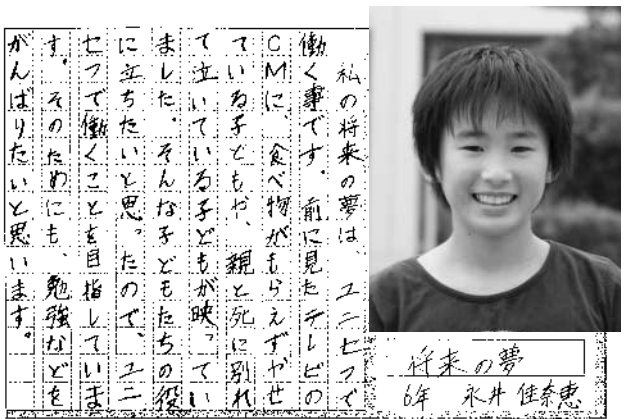 私の将来の夢は、ユニセフで
働く事です。前に見たテレビの
CMに、食べ物がもらえずやせ
ている子どもや、親と死に別れ
て泣いている子どもが映ってい
ました。そんな子どもたちの役
に立ちたいと思ったので、ユニ
セフで働くことを目指していま
す。そのためにも、勉強などを
がんばりたいと思います。
将来の夢
6年 永井佳奈恵